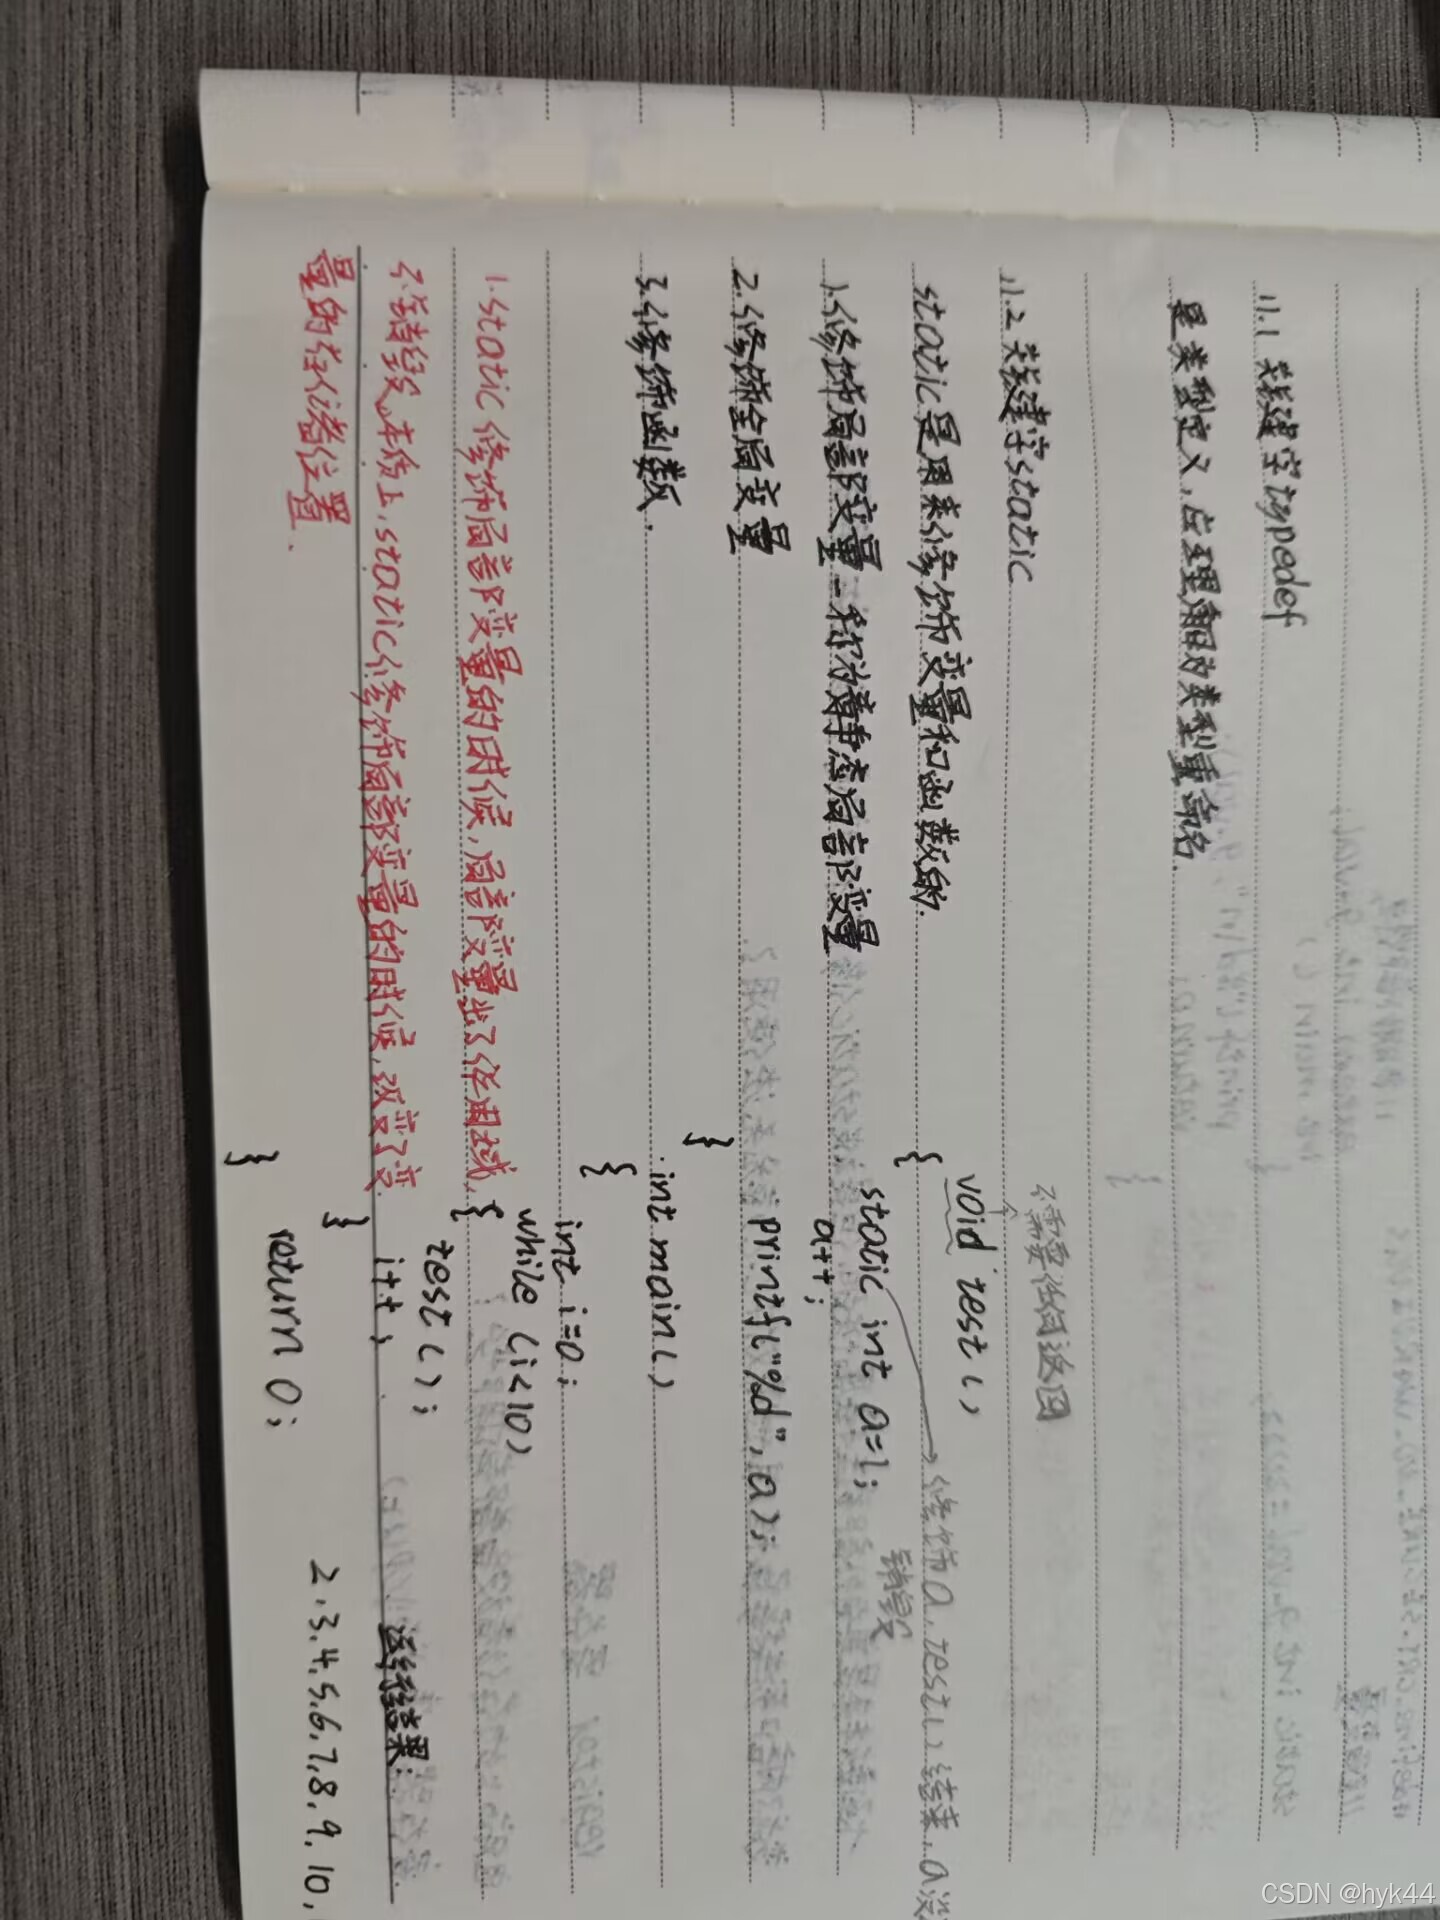 11.1 关键字typedef
是类型定义，应理解为类型重命名
11.2 关键字static
static是用来修饰变量和函数的.
1.修饰局部变量-称为静态局部变量
2.修饰全局变量
3.修饰函数.
1.static修饰局部变量的时候，局部变量出了作用域，
不销毁.本质上，static修饰局部变量的时候，改变了变
量的存储位置.
不需要任何返回
void test()
{
static int a=1; → 修饰a，test()结束，a没
销毁
a++;
printf("%d",a);
}
int main()
{
int i=0;
while (i<10)
{
test();
i++;
}
return 0;
}
运行结果：
2.3.4.5.6.7.8.9.10.
CSDN @hyk44